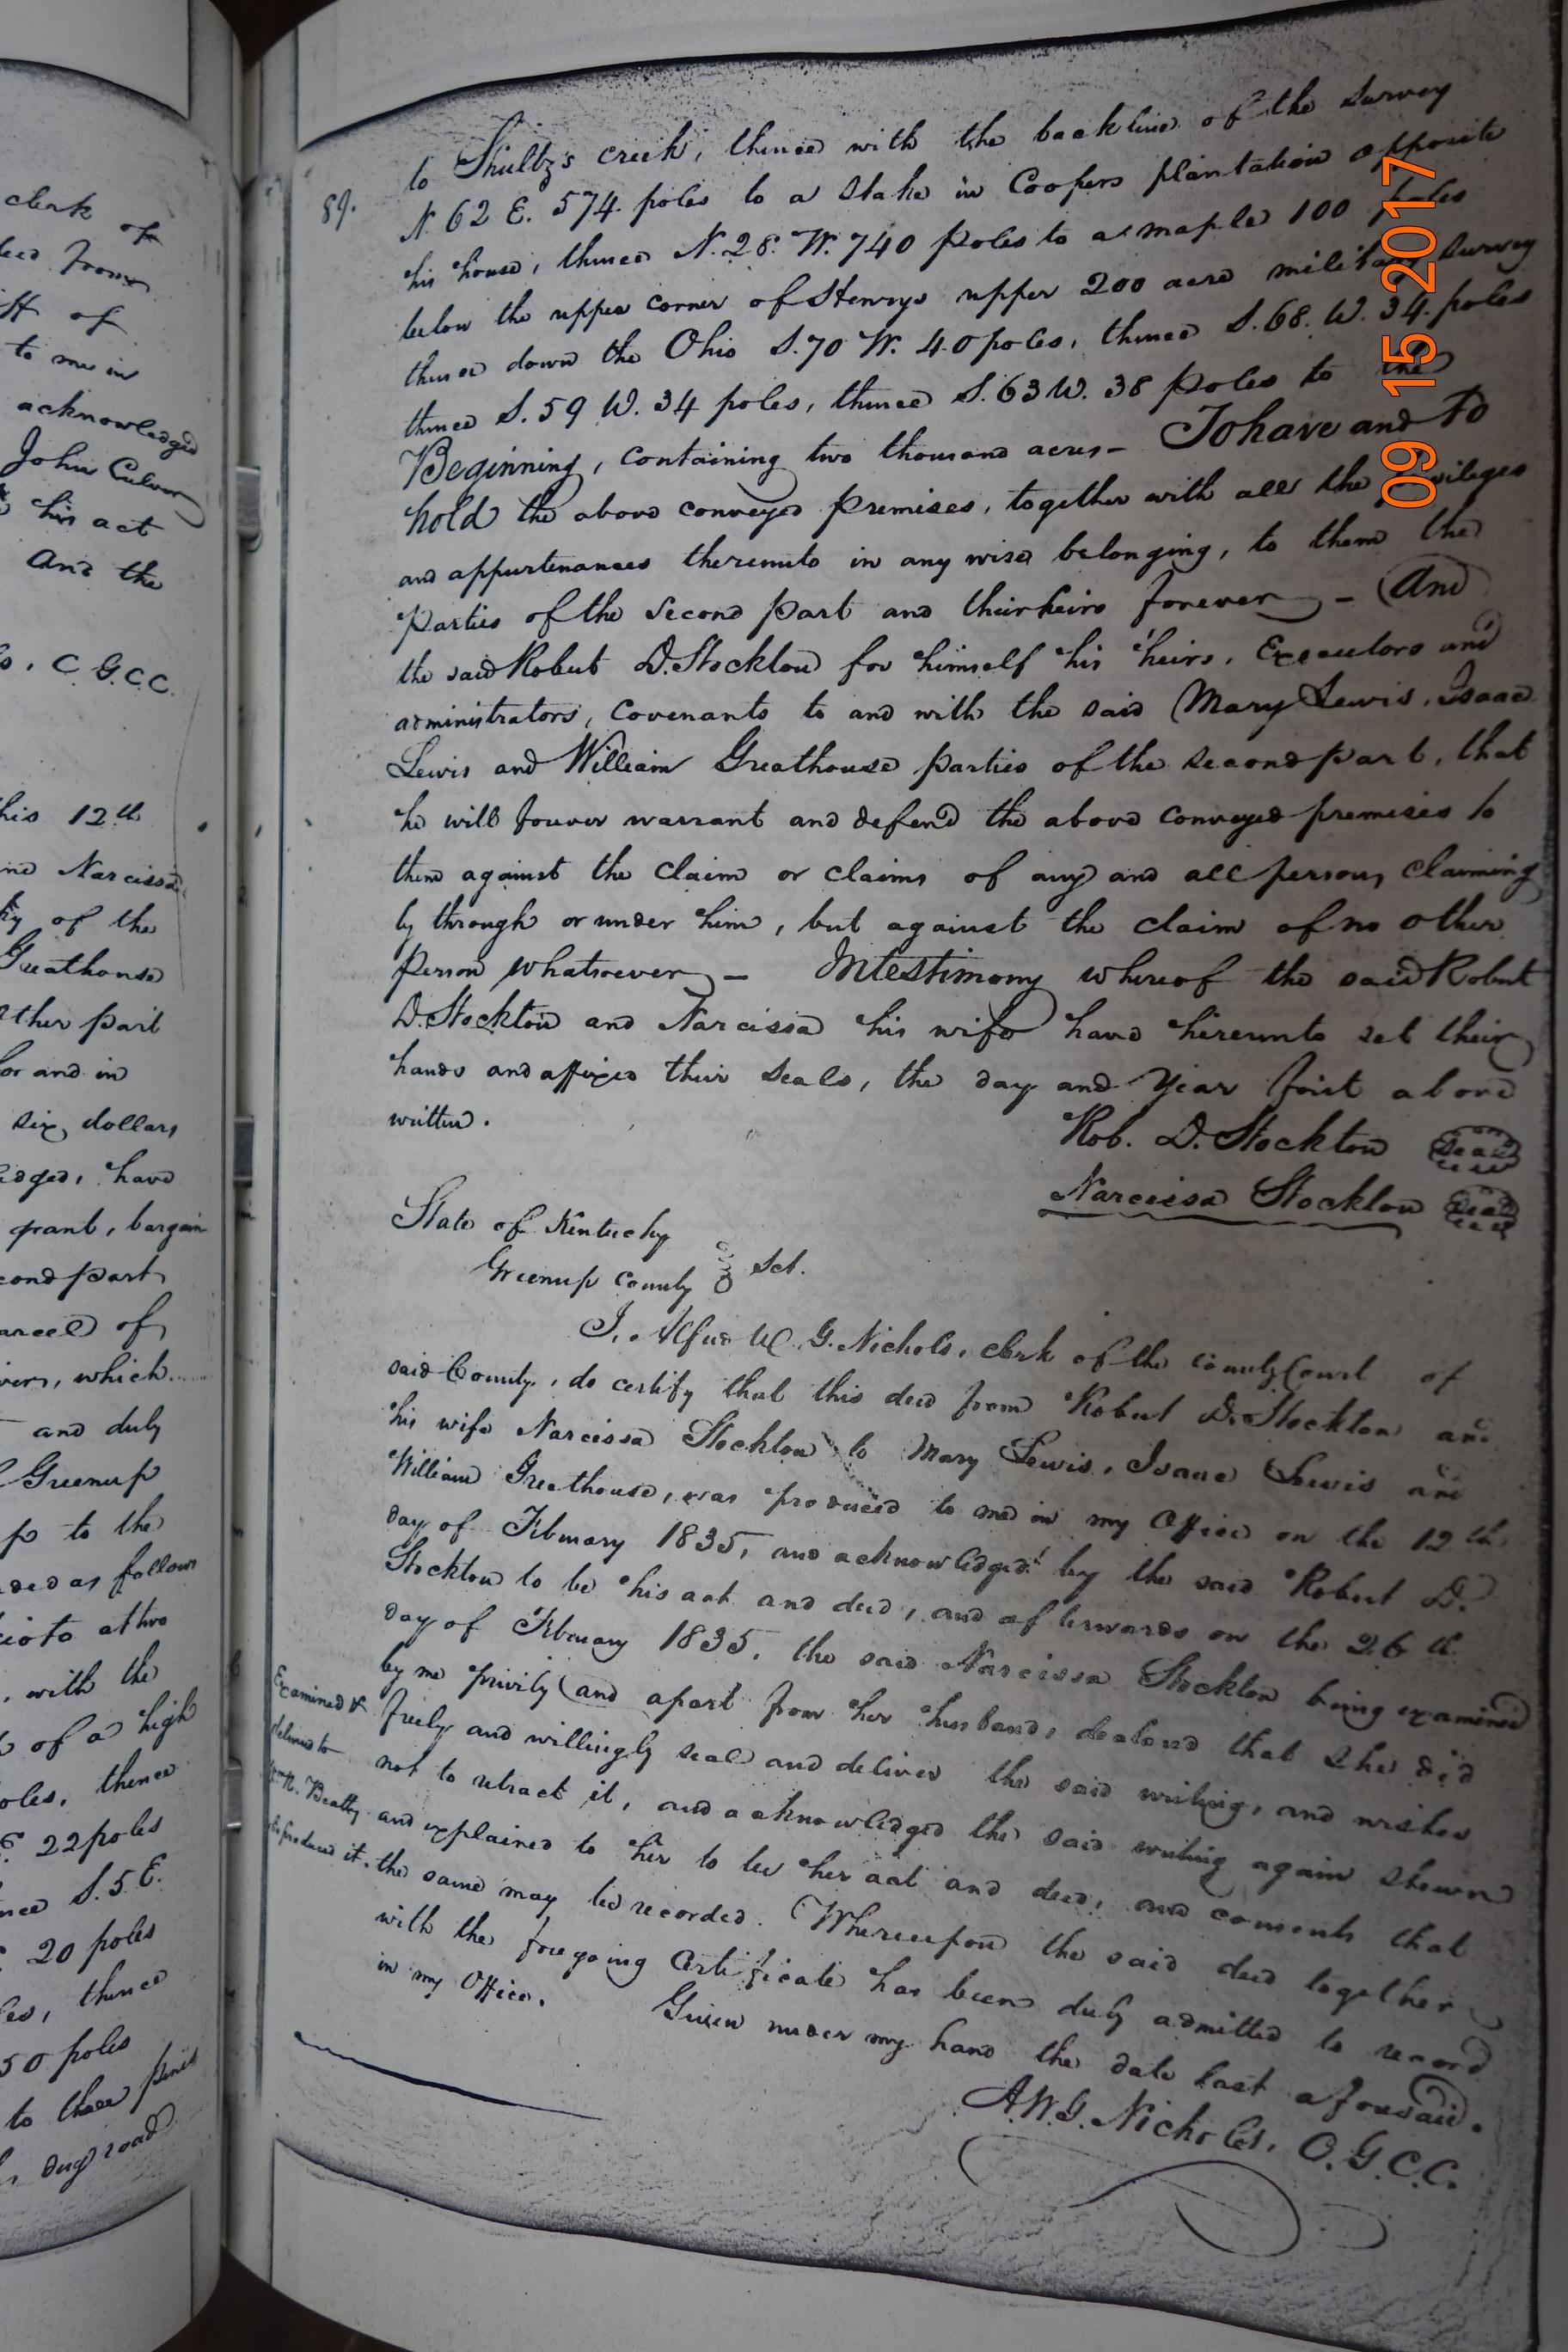 clerk of
deed from
of
to me in
acknowledged
John Culver
his act
And the
C. G. C. C.
this 12th
and Narcissa
of the
Greathouse
other part
for and in
six dollars
have
grant, bargain
second part
parcel of
which
and duly
Greenup
up to the
as follows
Scioto at two
, with the
of a high
poles, thence
22 poles
thence S. 5 E.
20 poles
poles, thence
50 poles
to three pines
dug road
89.
to Shultz's creek, thence with the back line of the survey
N. 62 E. 574 poles to a stake in Coopers plantation opposite
his house, thence N. 28. W. 740 poles to a maple 100 poles
below the upper corner of Henrys upper 200 acre military survey
thence down the Ohio S. 70 W. 40 poles, thence S. 68. W. 34. poles
thence S. 59 W. 34 poles, thence S. 63 W. 38 poles to the
Beginning, containing two thousand acres - To have and to
hold the above conveyed premises, together with all the privileges
and appurtenances thereunto in any wise belonging, to them the
parties of the second part and their heirs forever - And
the said Robert D. Stockton for himself his heirs, Executors and
administrators, covenants to and with the said Mary Lewis, Isaac
Lewis and William Greathouse parties of the second part, that
he will forever warrant and defend the above conveyed premises to
them against the claim or claims of any and all persons claiming
by through or under him, but against the claim of no other
person whatsoever - In testimony whereof the said Robert
D. Stockton and Narcissa his wife have hereunto set their
hands and affixed their seals, the day and year first above
written.
Rob. D. Stockton seal
Narcissa Stockton seal
State of Kentucky
Greenup County Sct.
I, Alfred W. G. Nichols, clerk of the County Court of
said County, do certify that this deed from Robert D. Stockton and
his wife Narcissa Stockton to Mary Lewis, Isaac Lewis and
William Greathouse, was produced to me in my Office on the 12th
day of February 1835, and acknowledged by the said Robert D.
Stockton to be his act and deed, and afterwards on the 26th
day of February 1835, the said Narcissa Stockton being examined
by me privily and apart from her husband, declared that she did
freely and willingly seal and deliver the said writing, and wishes
not to retract it, and acknowledged the said writing again shewn
and explained to her to be her act and deed, and consents that
the same may be recorded. Whereupon the said deed together
with the foregoing Certificate has been duly admitted to record
in my Office. Given under my hand the date last aforesaid.
A. W. G. Nichols, C. G. C. C.
Examined &
delivered to
Wm. R. Beatty
produced it.
09 15 2017